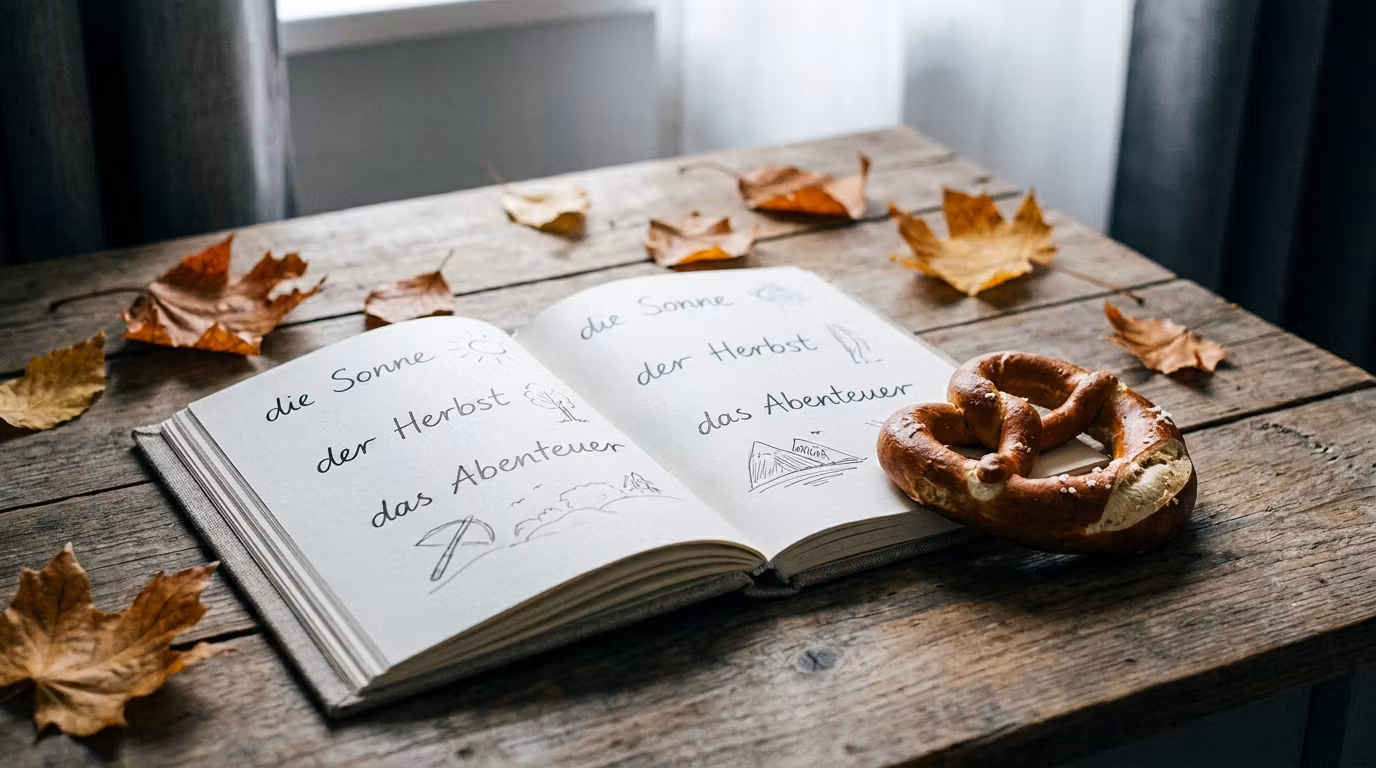 die Sonne
der Herbst
das Abenteuer
die Sonne
der Herbst
das Abenteuer